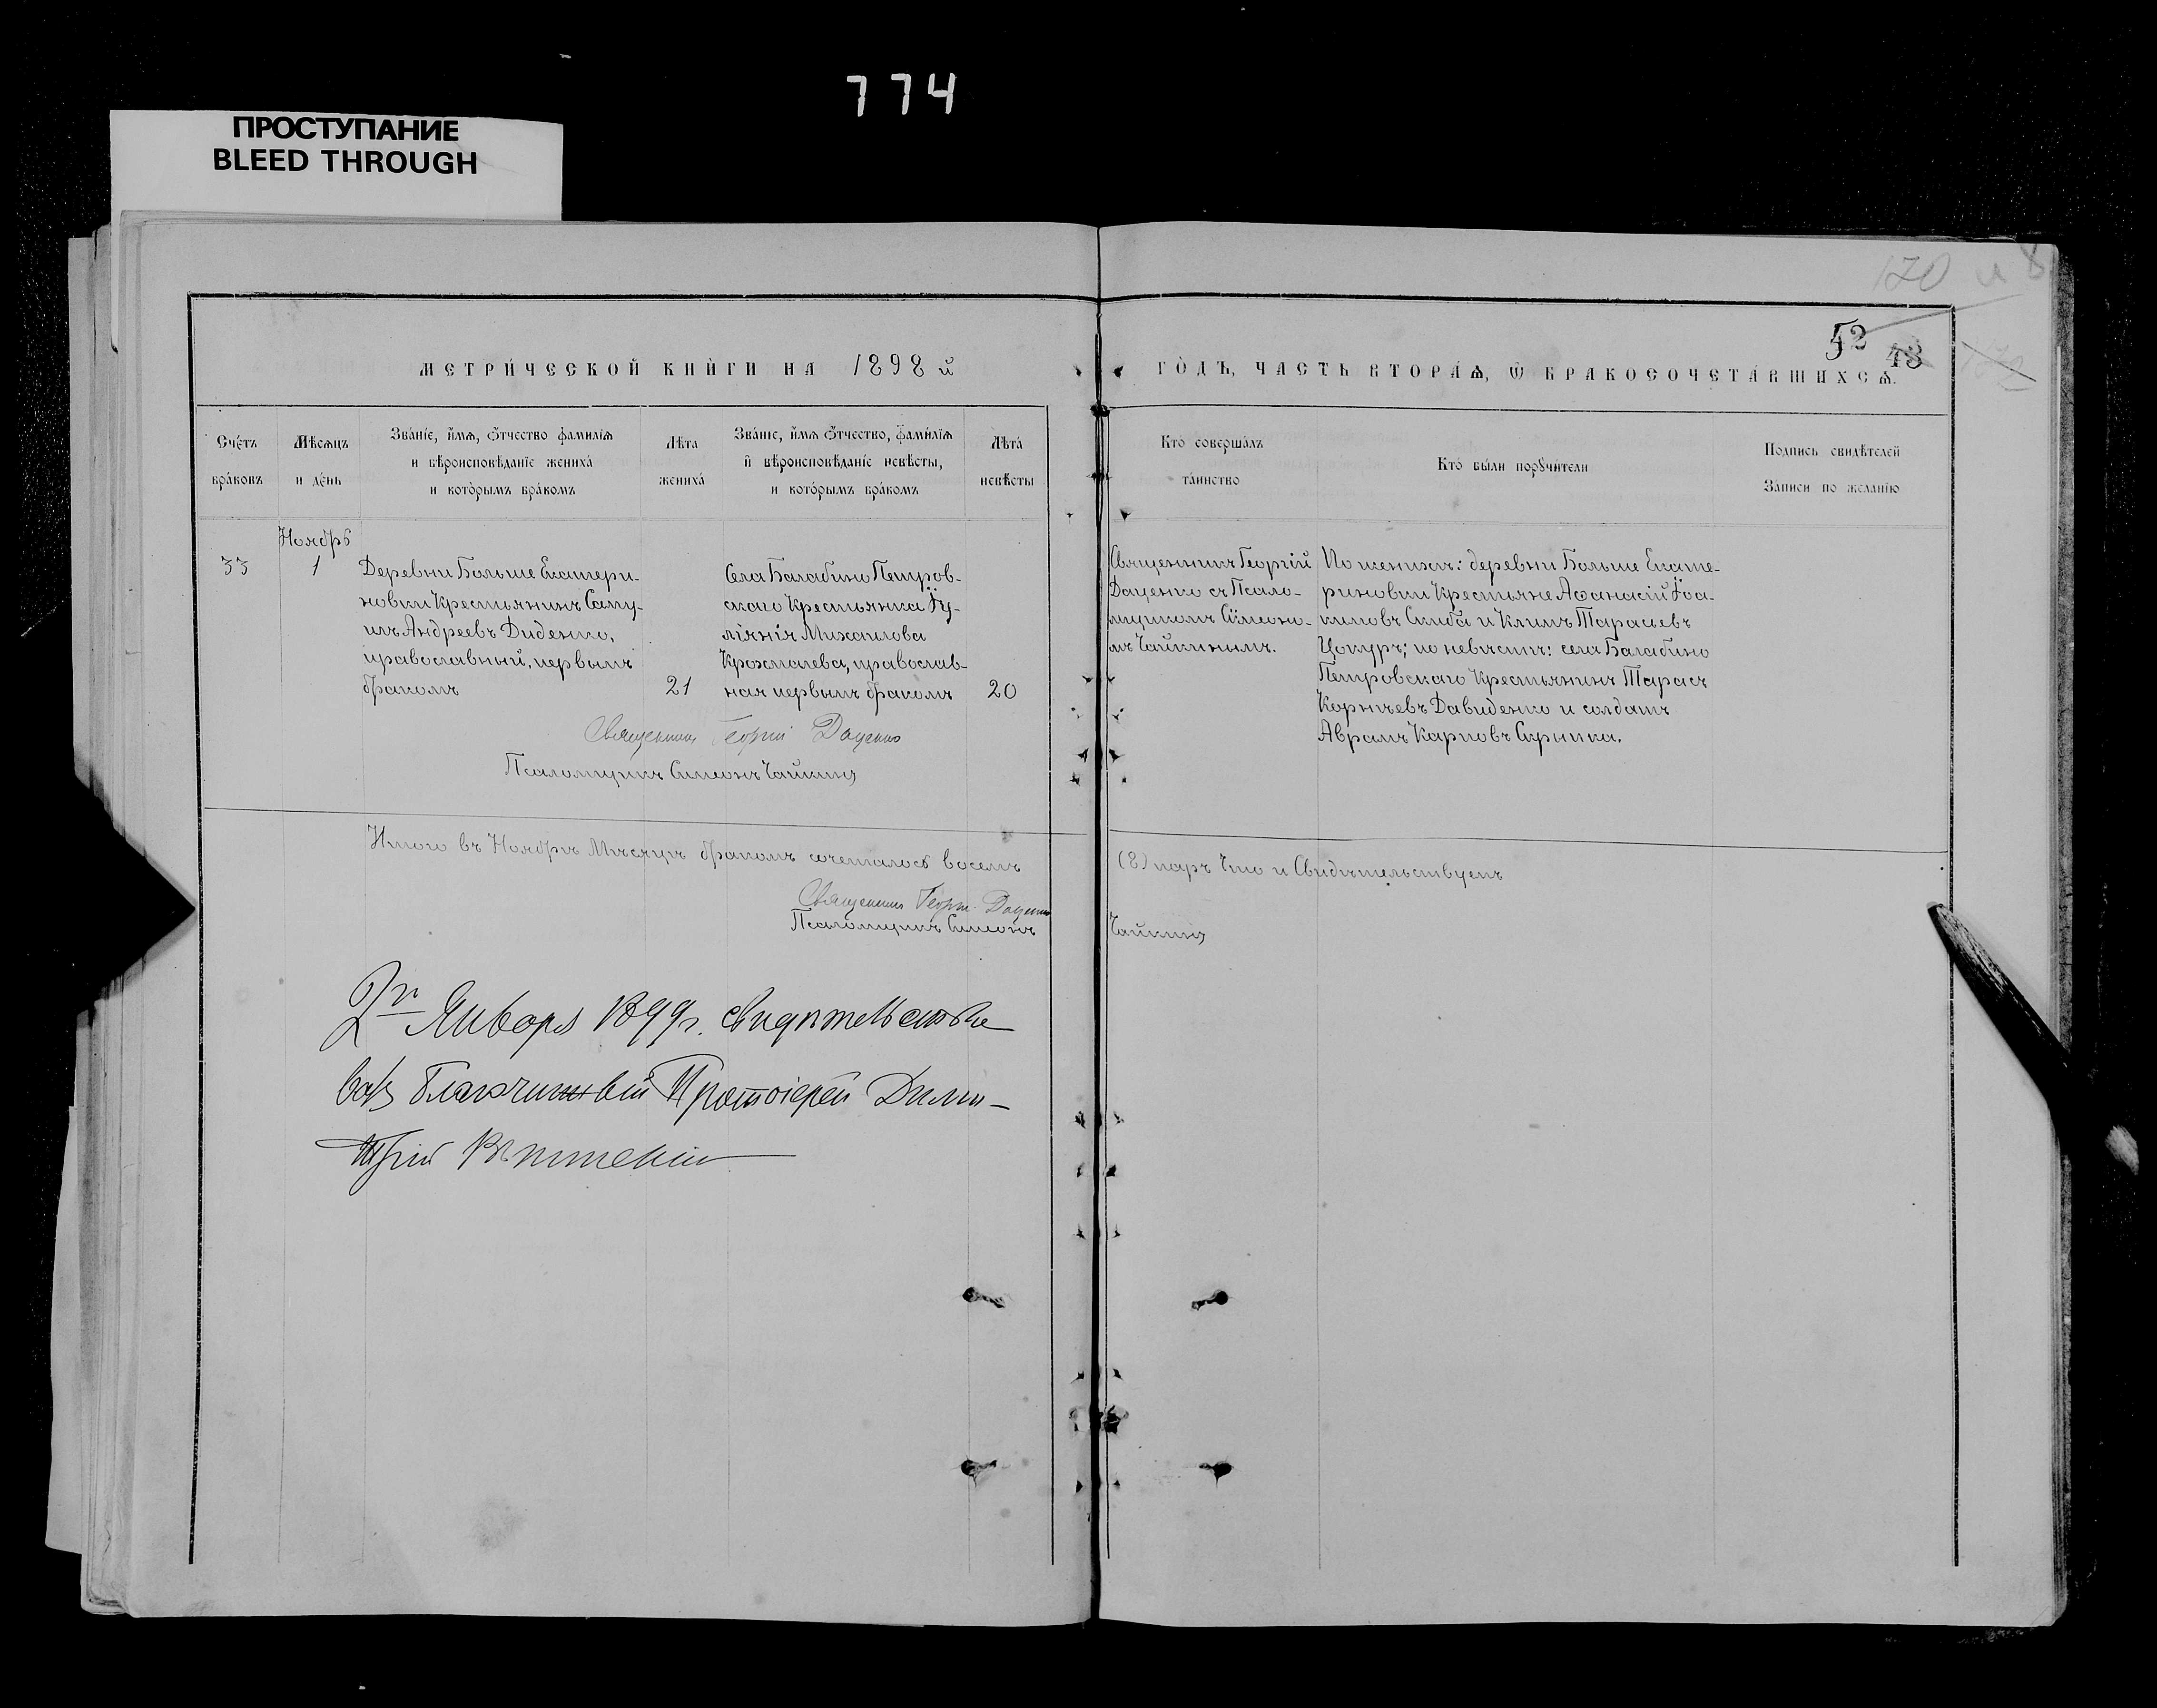 774
ПРОСТУПАНИЕ
BLEED THROUGH
170
52
43
МЕТРИ́ЧЕСКОЙ КНИ́ГИ НА 1898 й
ГО́ДЪ, ЧАСТЬ ВТОРА́Ѧ, Ѡ БРАКОСОЧЕТА́ВШИХСѦ.
Сче́тъ
бра́ковъ
Мѣ́сѧцъ
и де́нь
Зва́нїе, и́мѧ, ѻ́тчество фами́лїѧ
и вѣроисповѣ́данїе жениха́
и кото́рымъ бра́комъ
Лѣ́та
жениха́
Зва́нїе, и́мѧ ѻ́тчество, фами́лїѧ
и вѣроисповѣ́данїе невѣ́сты,
и кото́рымъ бра́комъ
Лѣта́
невѣ́сты
Кто соверша́лъ
та́инство
Кто́ бы́ли порꙋчи́тели
Подпись свидѣтелей
Записи по желанію
Ноябрь
33
1
Деревни Больше Екатери-
новки Крестьянинъ Саму-
илъ Андреевъ Диденко,
православный, первымъ
бракомъ
21
Села Балабино Петров-
скаго Крестьянка Іу-
ліянія Михаилова
Крохмалева, православ-
ная первымъ бракомъ
20
Священникъ Георгій
Даценко съ Псало-
мщикомъ Симеоно-
мъ Чайкинымъ.
По женихѣ: деревни Больше Екате-
риновки Крестьяне Аѳанасій Іоа-
кимовъ Скиба и Климъ Тарасіевъ
Цокуръ; по невѣстѣ: села Балабино
Петровскаго Крестьянинъ Тарасъ
Корнѣевъ Давиденко и солдатъ
Аврамъ Карповъ Скрипка.
Священникъ Георгій Даценко
Псаломщикъ Симеонъ Чайкинъ
Итого въ Ноябрѣ Мѣсяцѣ бракомъ сочеталось восемь
(8) паръ Что и Свидѣтельствуемъ
Священникъ Георгій Даценко
Псаломщикъ Симеонъ
Чайкинъ
2го Января 1899 г. свидѣтельство-
валъ Благочинный Протоіерей Дими-
трій